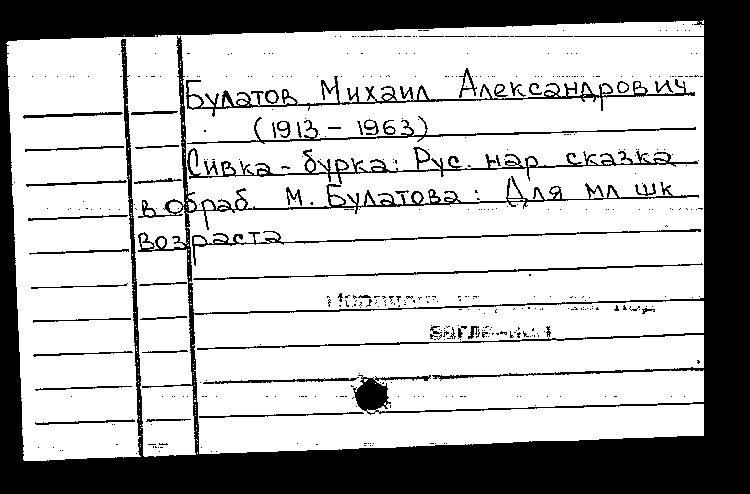 Булатов, Михаил Александрович
(1913 - 1963)
Сивка - бурка: Рус. нар. сказка
в обраб. М. Булатова: Для мл шк
возраста